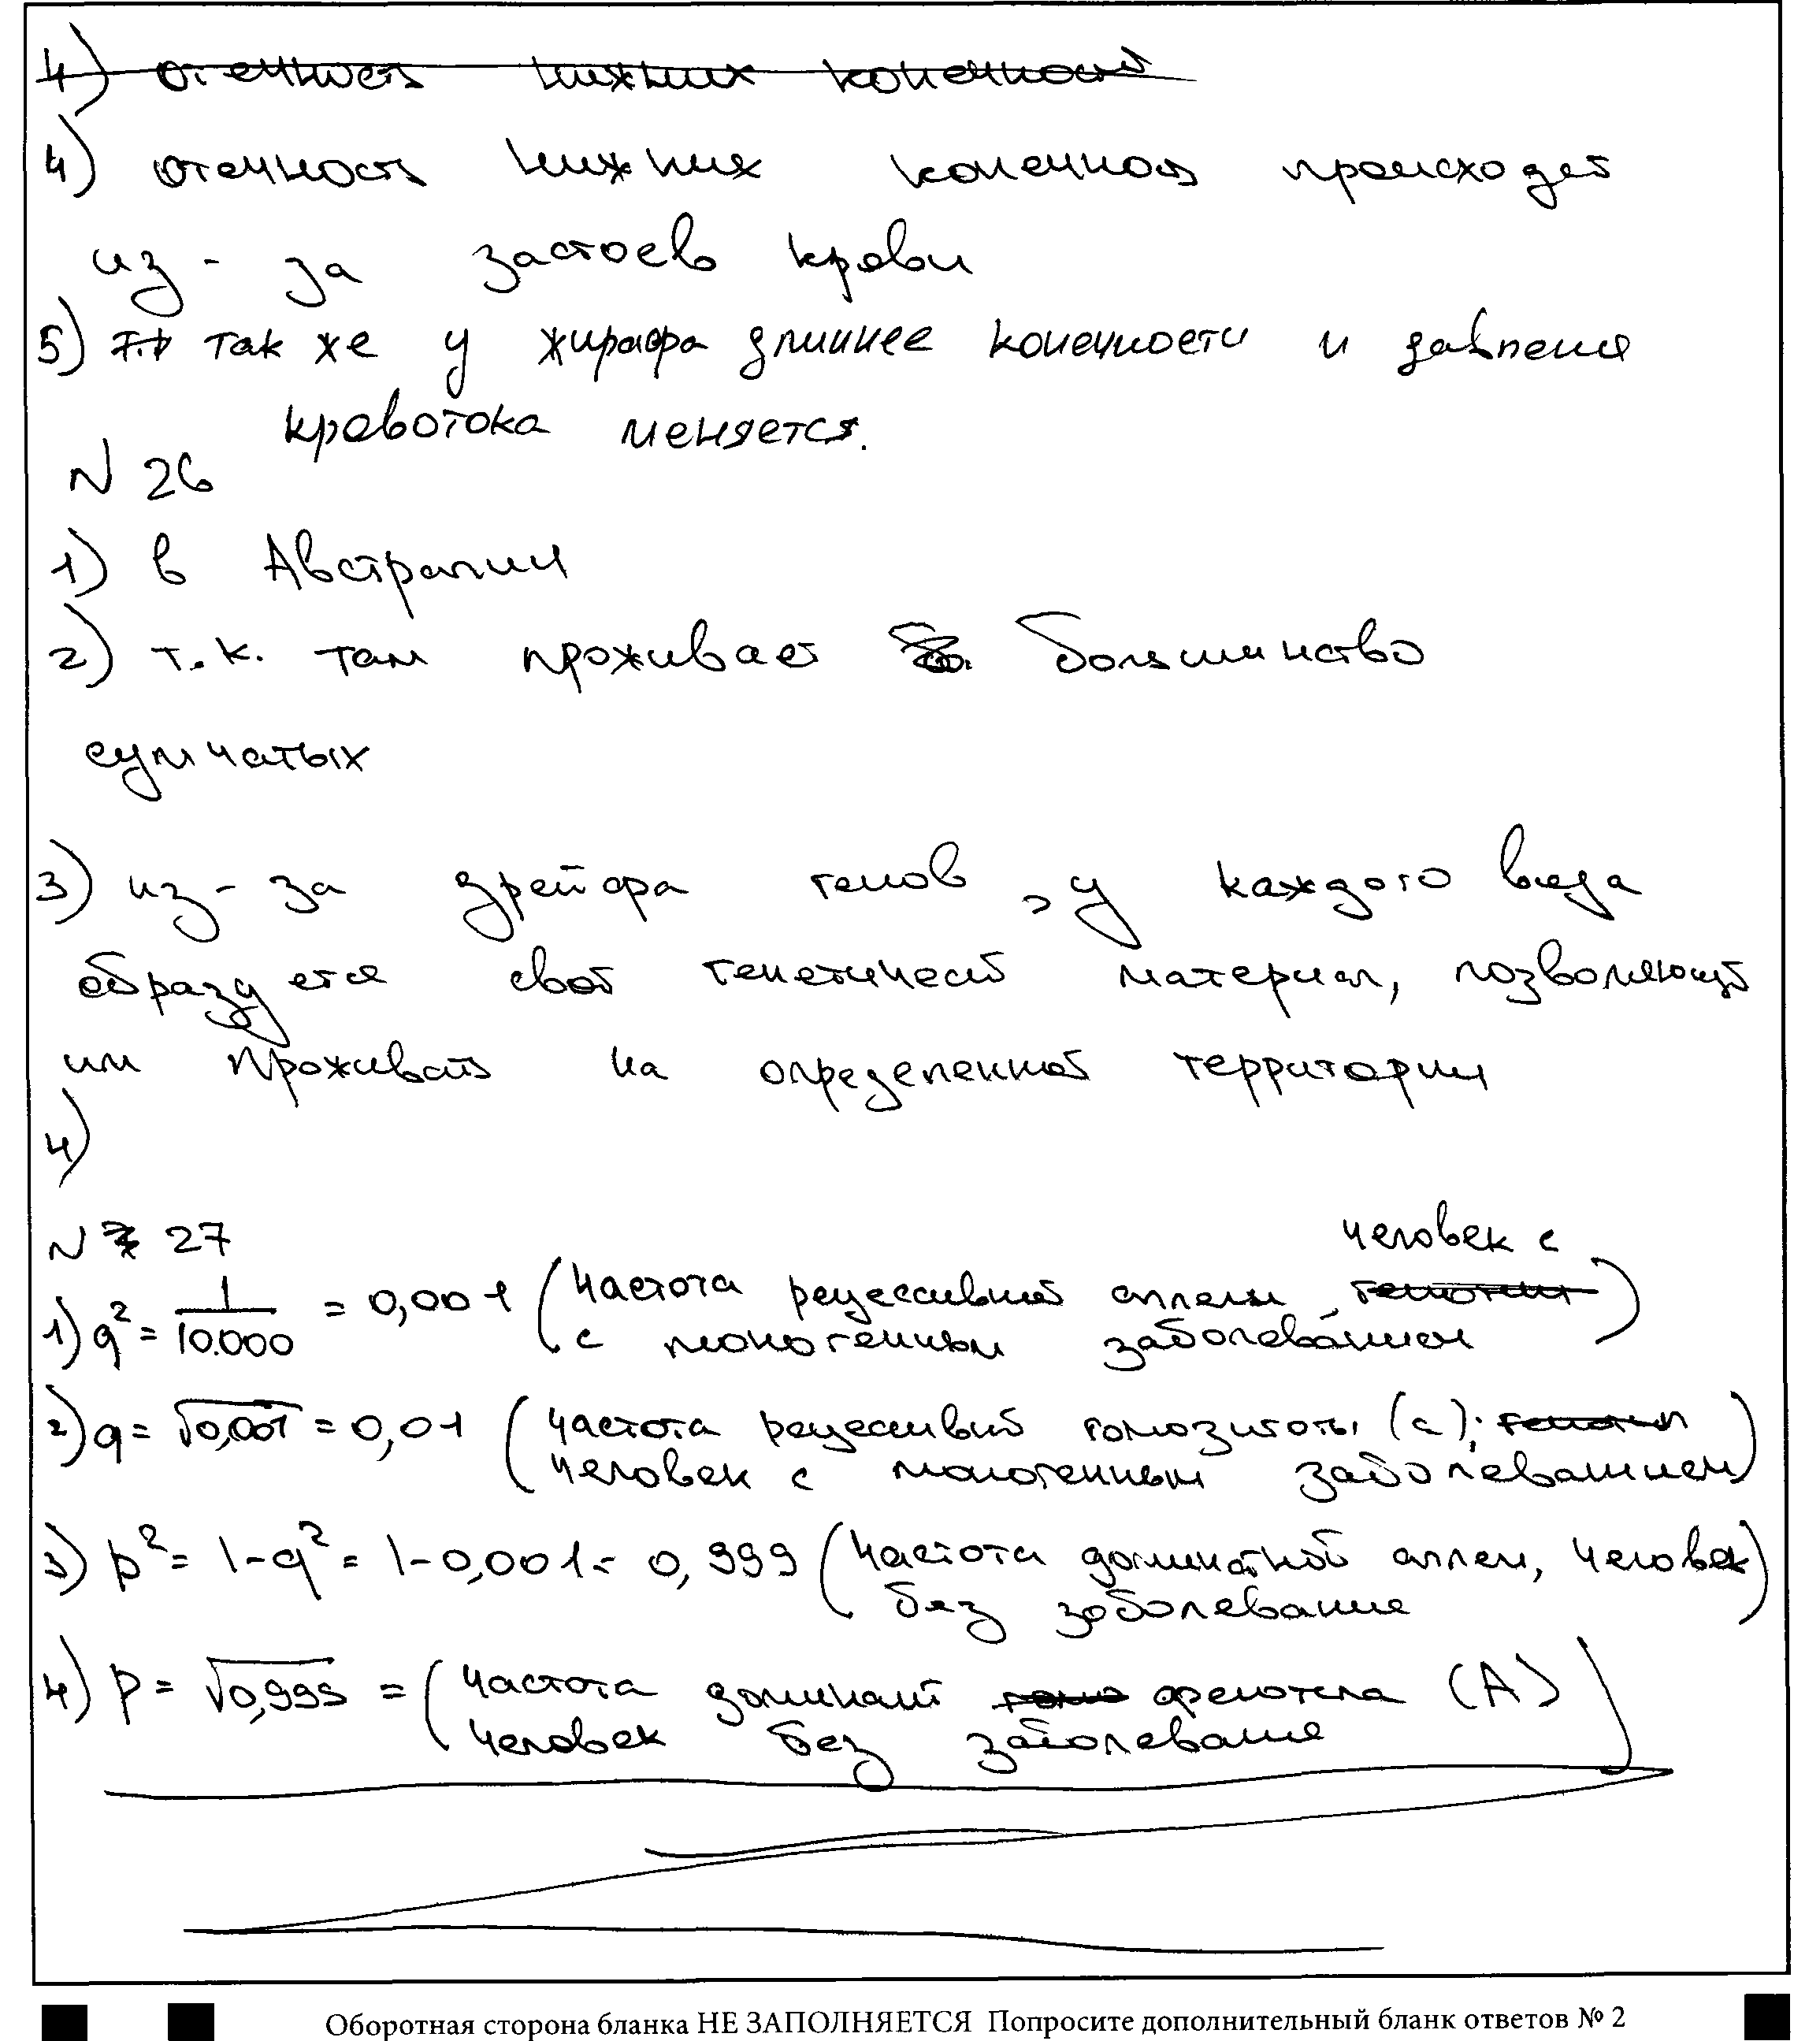 4) отечность нижних конечностей
4) отечность нижних конечность происходет
из-за застоев крови
5) т.к так же у жирафа длиннее конечности и давление
кровотока меняется.
N 26
1) в Австралии
2) т.к. там проживает большинство
сумчатых
3) из-за дрейфа генов, у каждого вида
образуется свой генетичесий материал, позволяющий
им проживать на определенной территории
4)
N 27
человек с
1) q² = 1/10.000 = 0,001 (частота рецессивной аллели, генотип)
с моногенным заболеванием
2) q = √0,001 = 0,01 (частота рецессивий гомозиготы (а); генотип
человек с моногенным заболеванием)
3) p² = 1-q² = 1-0,001 = 0,999 (частота доминатной аллели, человек
без заболевание)
4) p = √0,999 = (частота доминант фенотепа (А)
человек без заболевание)
Оборотная сторона бланка НЕ ЗАПОЛНЯЕТСЯ Попросите дополнительный бланк ответов № 2